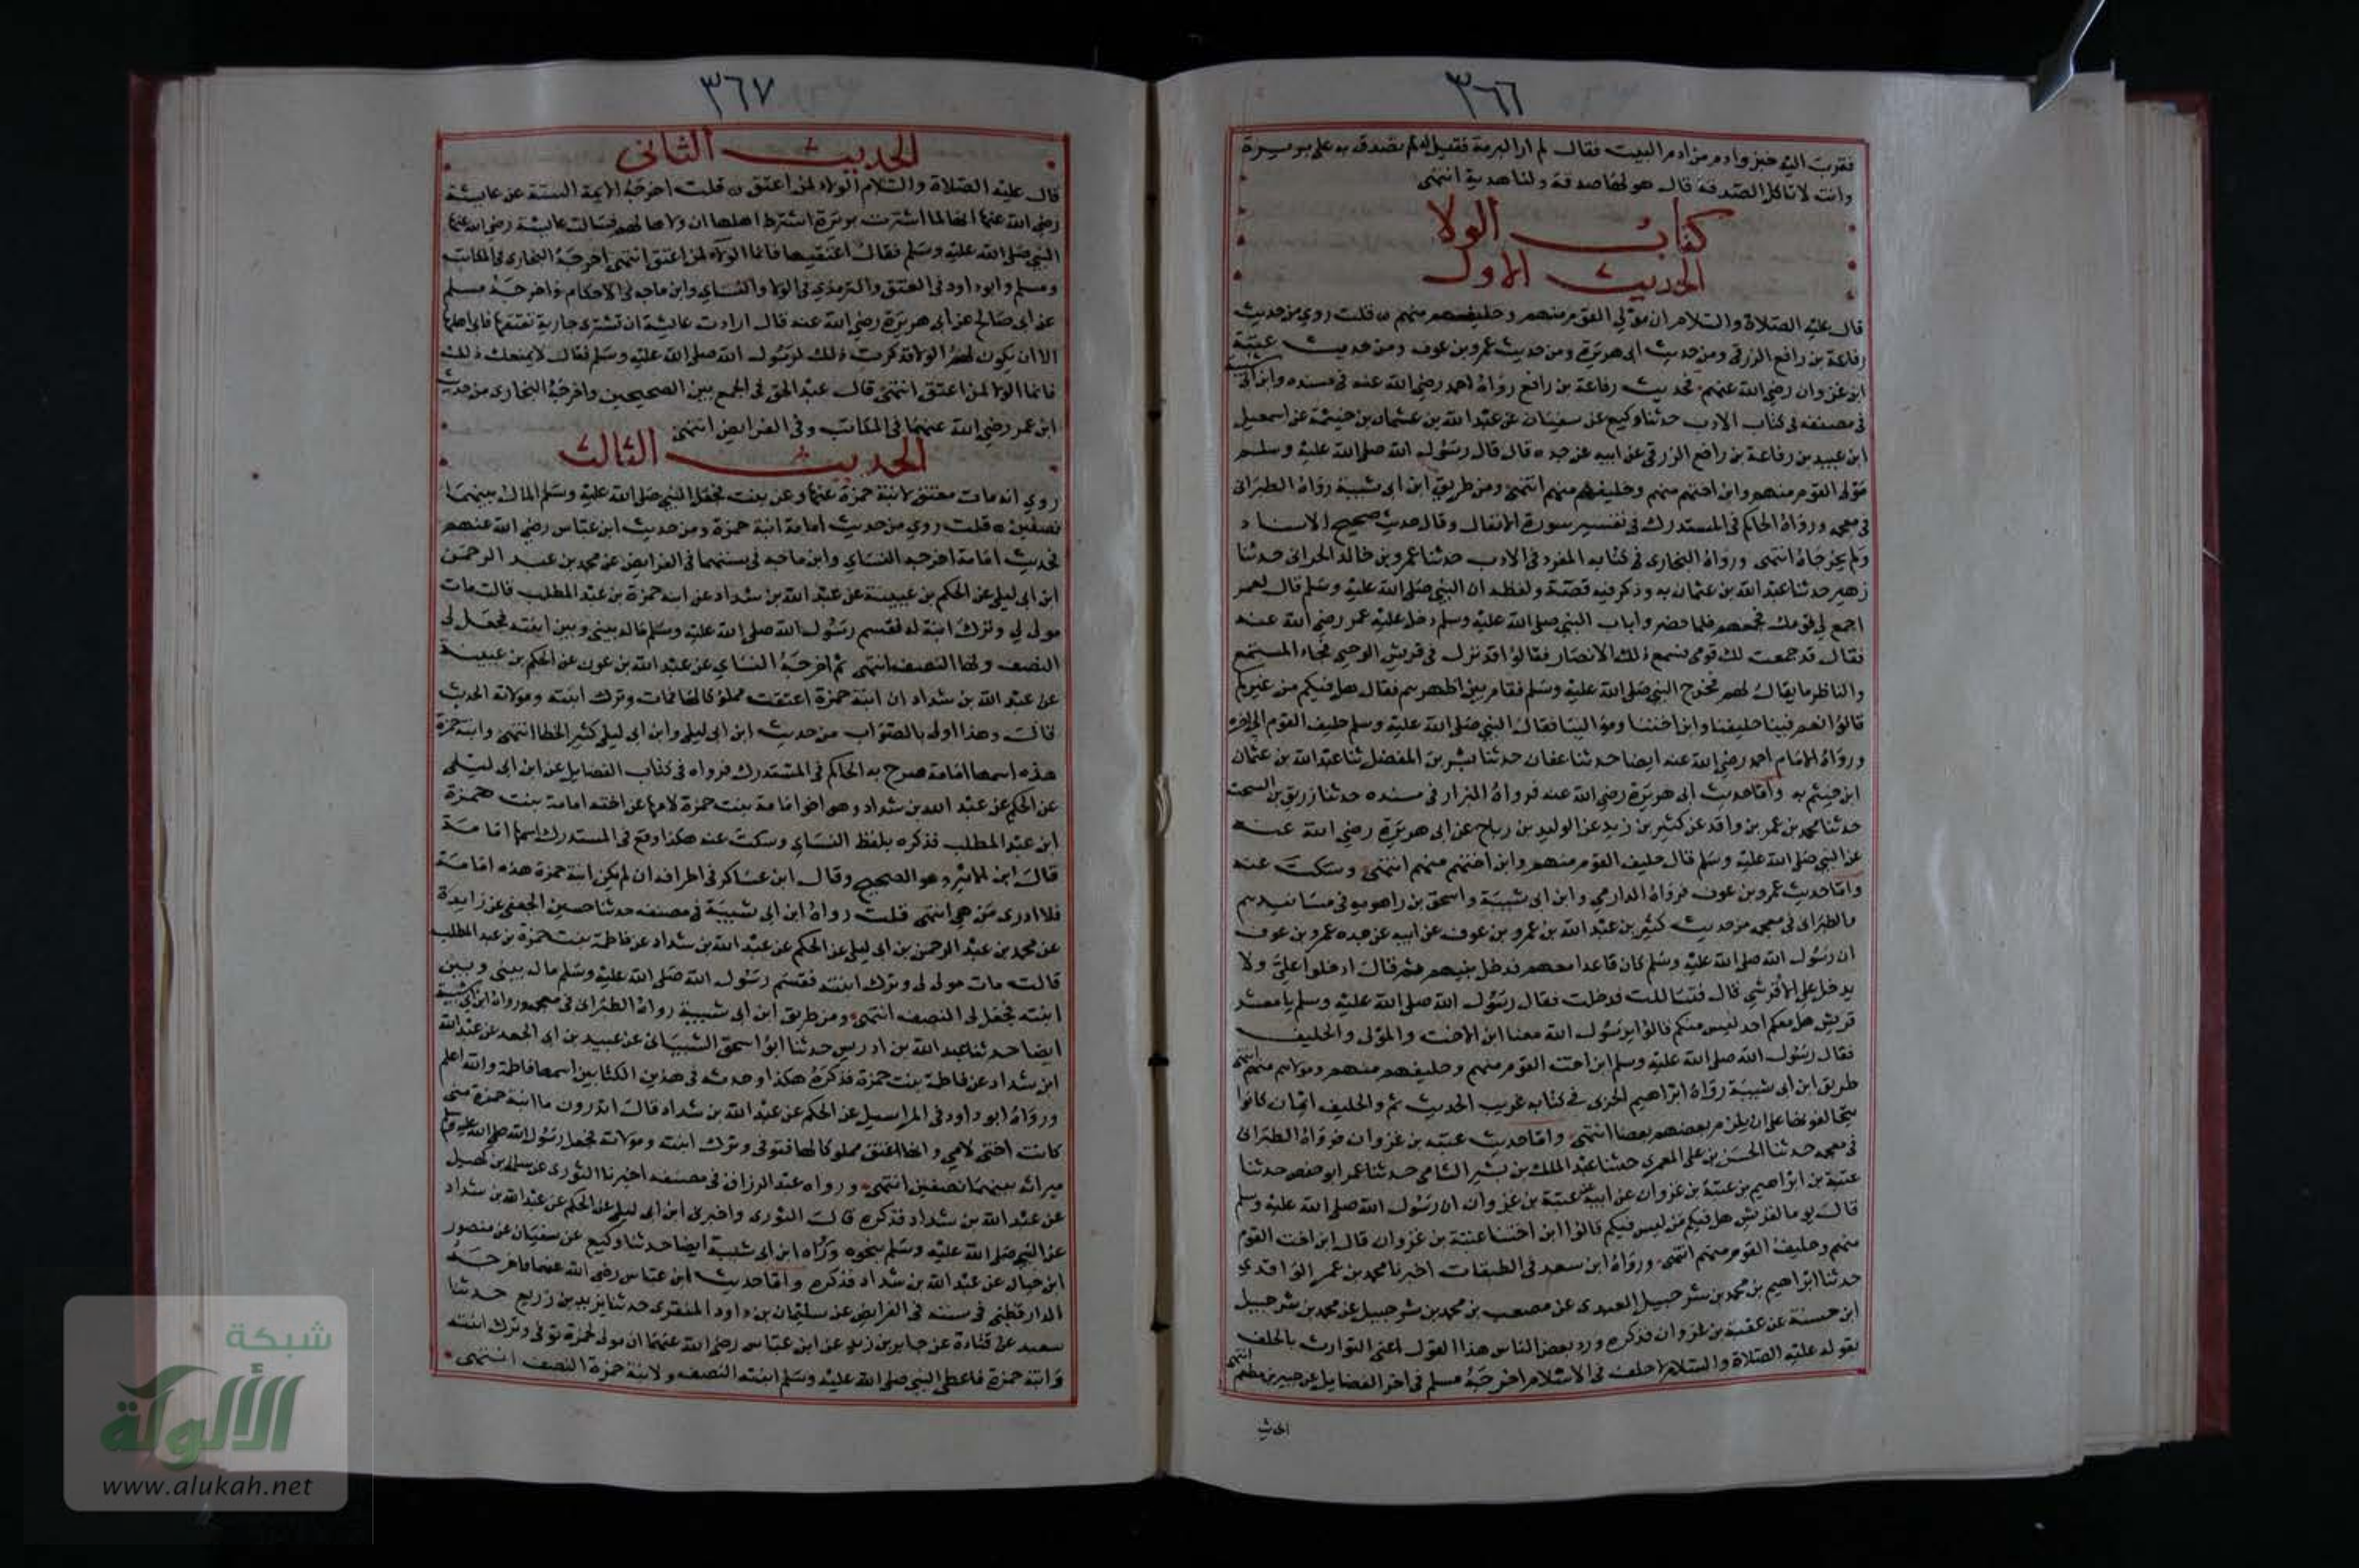 ٣٦٦
فقرب اليه خبز وادم من ادم البيت فقال لم ار البرمة فقيل له لحم تصدق به على بريرة
وانت لا تاكل الصدقة قال هو لها صدقة ولنا هدية انتهى
كتاب الولا
الحديث الاول
قال عليه الصلاة والسلام ان مولى القوم منهم وحليفهم منهم قلت روي من حديث
رفاعة بن رافع الزرقي ومن حديث ابى هريرة ومن حديث عمرو بن عوف ومن حديث عتبة
ابن غزوان رضي الله عنهم فحديث رفاعة بن رافع رواه احمد رضي الله عنه في مسنده وابن ابي شيبة
في مصنفه في كتاب الادب حدثنا وكيع عن سفيان عن عبد الله بن عثمان بن خيثم عن اسمعيل
ابن عبيد بن رفاعة بن رافع الزرقي عن ابيه عن جده قال قال رسول الله صلى الله عليه وسلم
مولى القوم منهم وابن اختهم منهم وحليفهم منهم انتهى ومن طريق ابن ابى شيبة رواه الطبرانى
في معجمه ورواه الحاكم في المستدرك في تفسير سورة الانفال وقال حديث صحيح الاسناد
ولم يخرجاه انتهى ورواه البخارى في كتابه المفرد في الادب حدثنا عمرو بن خالد الحرانى حدثنا
زهير حدثنا عبد الله بن عثمان به وذكر فيه قصة ولفظه ان النبي صلى الله عليه وسلم قال لعمر
اجمع لي قومك فجمعهم فلما حضروا باب النبي صلى الله عليه وسلم دخل عليه عمر رضي الله عنه
فقال قد جمعت لك قومى فسمع ذلك الانصار فقالوا قد نزل في قريش الوحى فجاء المستمع
والناظر ما يقال لهم فخرج النبي صلى الله عليه وسلم فقام بين اظهرهم فقال هل فيكم من غيركم
قالوا نعم فينا حليفنا وابن اختنا وموالينا فقال النبي صلى الله عليه وسلم حليف القوم الى اخره
ورواه الامام احمد رضي الله عنه ايضا حدثنا عفان حدثنا بشر بن المفضل ثنا عبد الله بن عثمان
ابن خيثم به واما حديث ابى هريرة رضي الله عنه فرواه البزار في مسنده حدثنا زريق بن السخت
حدثنا محمد بن عمر بن واقد عن كثير بن زيد عن الوليد بن رباح عن ابى هريرة رضي الله عنه
عن النبي صلى الله عليه وسلم قال حليف القوم منهم وابن اختهم منهم انتهى وسكت عنه
واما حديث عمرو بن عوف فرواه الدارمي وابن ابى شيبة واسحق بن راهويه في مسانيدهم
والطبرانى في معجمه من حديث كثير بن عبد الله بن عمرو بن عوف عن ابيه عن جده عمرو بن عوف
ان رسول الله صلى الله عليه وسلم كان قاعدا معهم فدخل بيته ثم قال ادخلوا علي ولا
يدخل علي الا قرشي قال فتسالت فدخلت فقال رسول الله صلى الله عليه وسلم يا معشر
قريش هل معكم احد ليس منكم قالوا يا رسول الله معنا ابن الاخت والمولى والحليف
فقال رسول الله صلى الله عليه وسلم ابن اخت القوم منهم وحليفهم منهم ومولاهم منهم انتهى
طريق ابن ابى شيبة رواه ابراهيم الحربى في كتابه غريب الحديث ثم والحليف ايمان كانوا
يتحالفونها على ان يلزم بعضهم بعضا انتهى واما حديث عتبة بن غزوان فرواه الطبرانى
في معجمه حدثنا الحسن بن علي المعمري حدثنا عبد الملك بن بشير الشامى حدثنا عمر ابو حفص حدثنا
عتبة بن ابراهيم بن عتبة بن غزوان عن ابيه عن عتبة بن غزوان ان رسول الله صلى الله عليه وسلم
قال يوما لقريش هل فيكم من ليس فيكم قالوا ابن اختنا عتبة بن غزوان قال ابن اخت القوم
منهم وحليف القوم منهم انتهى ورواه ابن سعد في الطبقات اخبرنا محمد بن عمر الواقدي
حدثنا ابراهيم بن محمد بن شرحبيل العبدرى عن مصعب بن محمد بن شرحبيل عن محمد بن شرحبيل
ابن حسنة عن عتبة بن غزوان فذكره ورد بعض الناس هذا القول اعنى التوارث بالحلف
بقوله عليه الصلاة والسلام لا حلف في الاسلام اخرجه مسلم في اخر الفضايل عن جبير بن مطعم انتهى
الحديث
٣٦٧
الحديث الثانى
قال عليه الصلاة والسلام الولاء لمن اعتق قلت اخرجه الايمة الستة عن عايشة
رضي الله عنها انها لما اشترت بريرة اشترط اهلها ان ولاءها لهم فسالت عايشة رضي الله عنها
النبي صلى الله عليه وسلم فقال اعتقيها فانما الولاء لمن اعتق انتهى اخرجه البخارى في المكاتب
ومسلم وابو داود في العتق والترمذي في الولا والنساي وابن ماجه في الاحكام واخرجه مسلم
عن ابى صالح عن ابى هريرة رضي الله عنه قال ارادت عايشة ان تشترى جارية تعتقها فابى اهلها
الا ان يكون لهم الولا فذكرت ذلك لرسول الله صلى الله عليه وسلم فقال لا يمنعك ذلك
فانما الولا لمن اعتق انتهى قال عبد الحق في الجمع بين الصحيحين واخرجه البخارى من حديث
ابن عمر رضي الله عنهما في المكاتب وفي الفرايض انتهى
الحديث الثالث
روي انه مات معتق لابنة حمزة عنها وعن بنت فجعل النبي صلى الله عليه وسلم المال بينهما
نصفين قلت روي من حديث امامة ابنة حمزة ومن حديث ابن عباس رضي الله عنهم
فحديث امامة اخرجه النساي وابن ماجه في سننهما في الفرايض عن محمد بن عبد الرحمن
ابن ابى ليلى عن الحكم بن عيينة عن عبد الله بن شداد عن ابنة حمزة بن عبد المطلب قالت مات
مولى لي وترك ابنة له فقسم رسول الله صلى الله عليه وسلم ماله بينى وبين ابنته فجعل لى
النصف ولها النصف انتهى ثم اخرجه النساي عن عبد الله بن عون عن الحكم بن عيينة
عن عبد الله بن شداد ان ابنة حمزة اعتقت مملوكا لها فمات وترك ابنته ومولاته الحديث
قال وهذا اولى بالصواب من حديث ابن ابى ليلى وابن ابى ليلى كثير الخطا انتهى وابنة حمزة
هذه اسمها امامة صرح به الحاكم في المستدرك فرواه في كتاب الفضايل عن ابن ابى ليلى
عن الحكم عن عبد الله بن شداد وهو اخو امامة بنت حمزة لامها عن اخته امامة بنت حمزة
ابن عبد المطلب فذكره بلفظ النساي وسكت عنه هكذا وقع في المستدرك اسمها امامة
قال ابن الاثير وهو الصحيح وقال ابن عساكر في اطرافه ان لم يكن ابنة حمزة هذه امامة
فلا ادرى من هي انتهى قلت رواه ابن ابى شيبة في مصنفه حدثنا حسين الجعفى عن زايدة
عن محمد بن عبد الرحمن بن ابى ليلى عن الحكم عن عبد الله بن شداد عن فاطمة بنت حمزة بن عبد المطلب
قالت مات مولى لى وترك ابنته فقسم رسول الله صلى الله عليه وسلم ماله بينى وبين
ابنته فجعل لى النصف انتهى ومن طريق ابن ابى شيبة رواه الطبرانى في معجمه ورواه ابن ابي شيبة
ايضا حدثنا عبد الله بن ادريس حدثنا ابو اسحق الشيبانى عن عبيد بن ابى الجعد عن عبد الله
ابن شداد عن فاطمة بنت حمزة فذكره هكذا وجدته في هذين الكتابين اسمها فاطمة والله اعلم
ورواه ابو داود في المراسيل عن الحكم عن عبد الله بن شداد قال اتدرون ما ابنة حمزة منى
كانت اختى لامي وانها اعتق مملوكا لها فتوفى وترك ابنته ومولاته فجعل رسول الله صلى الله عليه وسلم
ميراثه بينهما نصفين انتهى ورواه عبد الرزاق في مصنفه اخبرنا الثورى عن سلمة بن كهيل
عن عبد الله بن شداد فذكره قال الثورى واخبرنى ابن ابى ليلى عن الحكم عن عبد الله بن شداد
عن النبي صلى الله عليه وسلم بنحوه ورواه ابن ابى شيبة ايضا حدثنا وكيع عن سفيان عن منصور
ابن حيان عن عبد الله بن شداد فذكره واما حديث ابن عباس رضي الله عنهما فاخرجه
الدارقطنى في سننه في الفرايض عن سليمان بن داود المنقرى حدثنا يزيد بن زريع حدثنا
سعيد عن قتادة عن جابر بن زيد عن ابن عباس رضي الله عنهما ان مولى لحمزة توفى وترك ابنته
وابنة حمزة فاعطى النبي صلى الله عليه وسلم ابنته النصف ولابنة حمزة النصف انتهى
شبكة
الألوكة
www.alukah.net